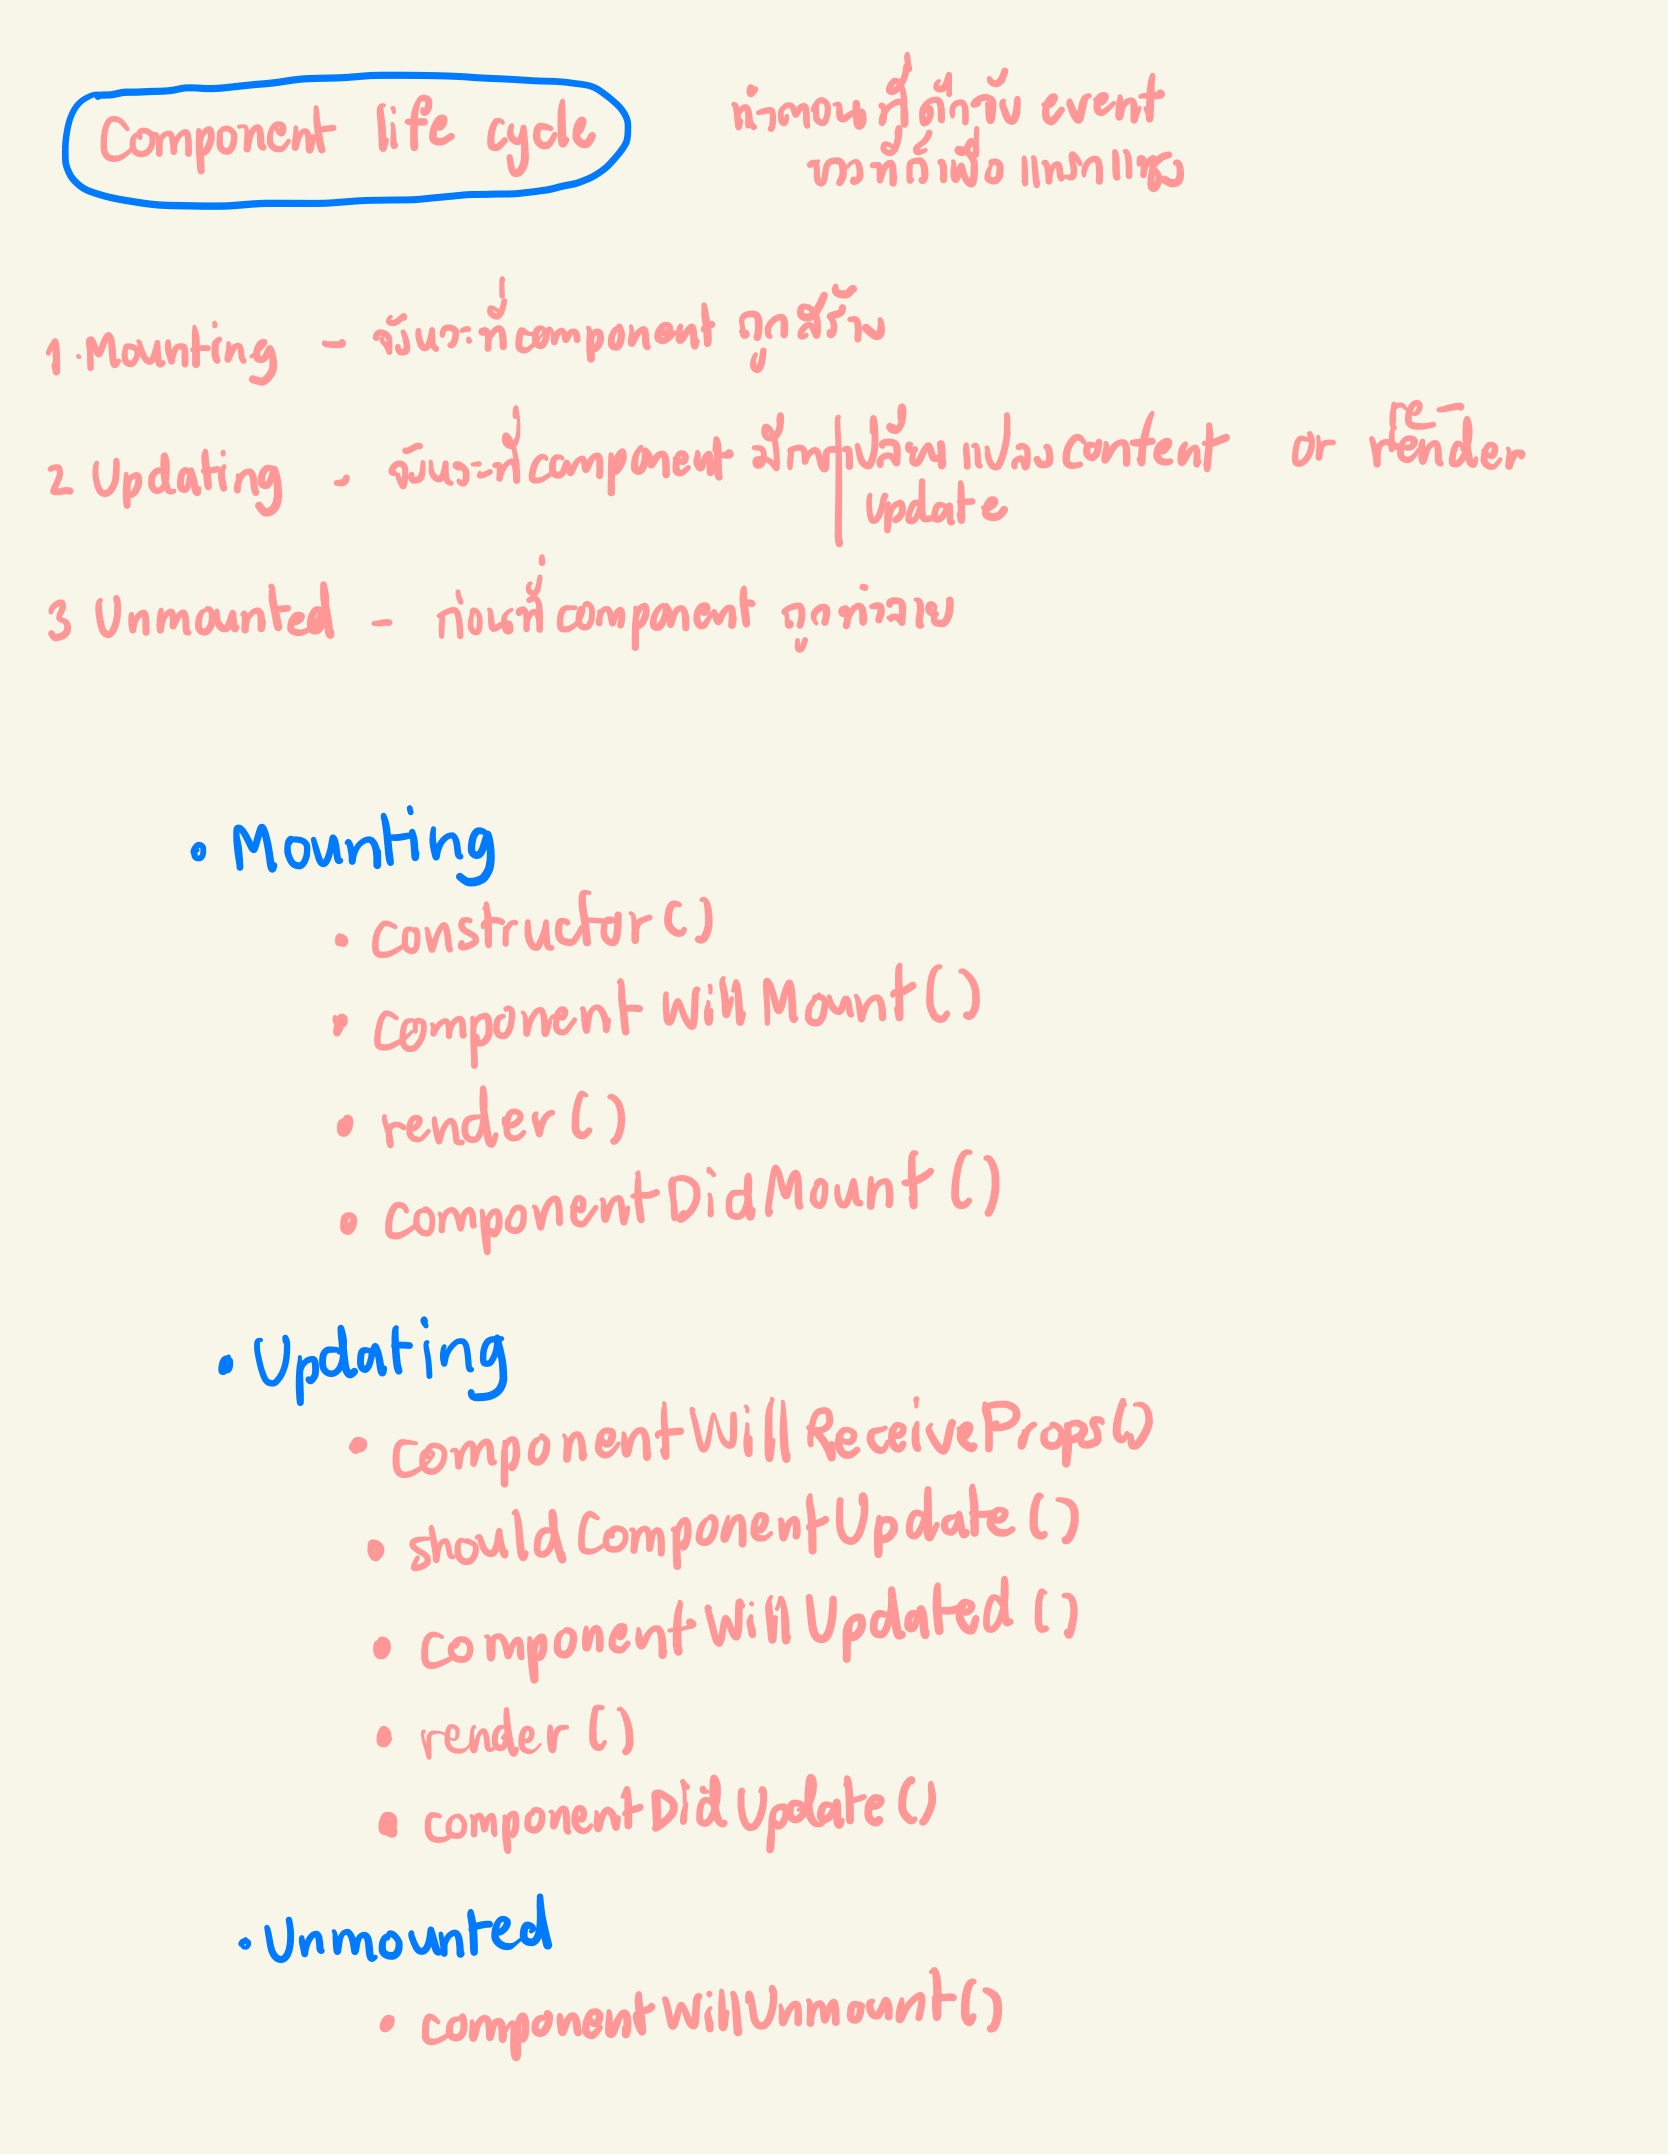 Component life cycle
ทำตอนที่ดักจับ event
บางที่ก็เพื่อ แทรกแซง
1. Mounting - จังหวะที่ component ถูกสร้าง
2 Updating - จังหวะที่ component มีการเปลี่ยนแปลง content or re-render
update
3 Unmounted - ก่อนที่ component ถูกทำลาย
• Mounting
• constructor()
• componentWillMount()
• render()
• componentDidMount()
• Updating
• componentWillReceiveProps()
• shouldComponentUpdate()
• componentWillUpdated()
• render()
• componentDidUpdate()
• Unmounted
• componentWillUnmount()